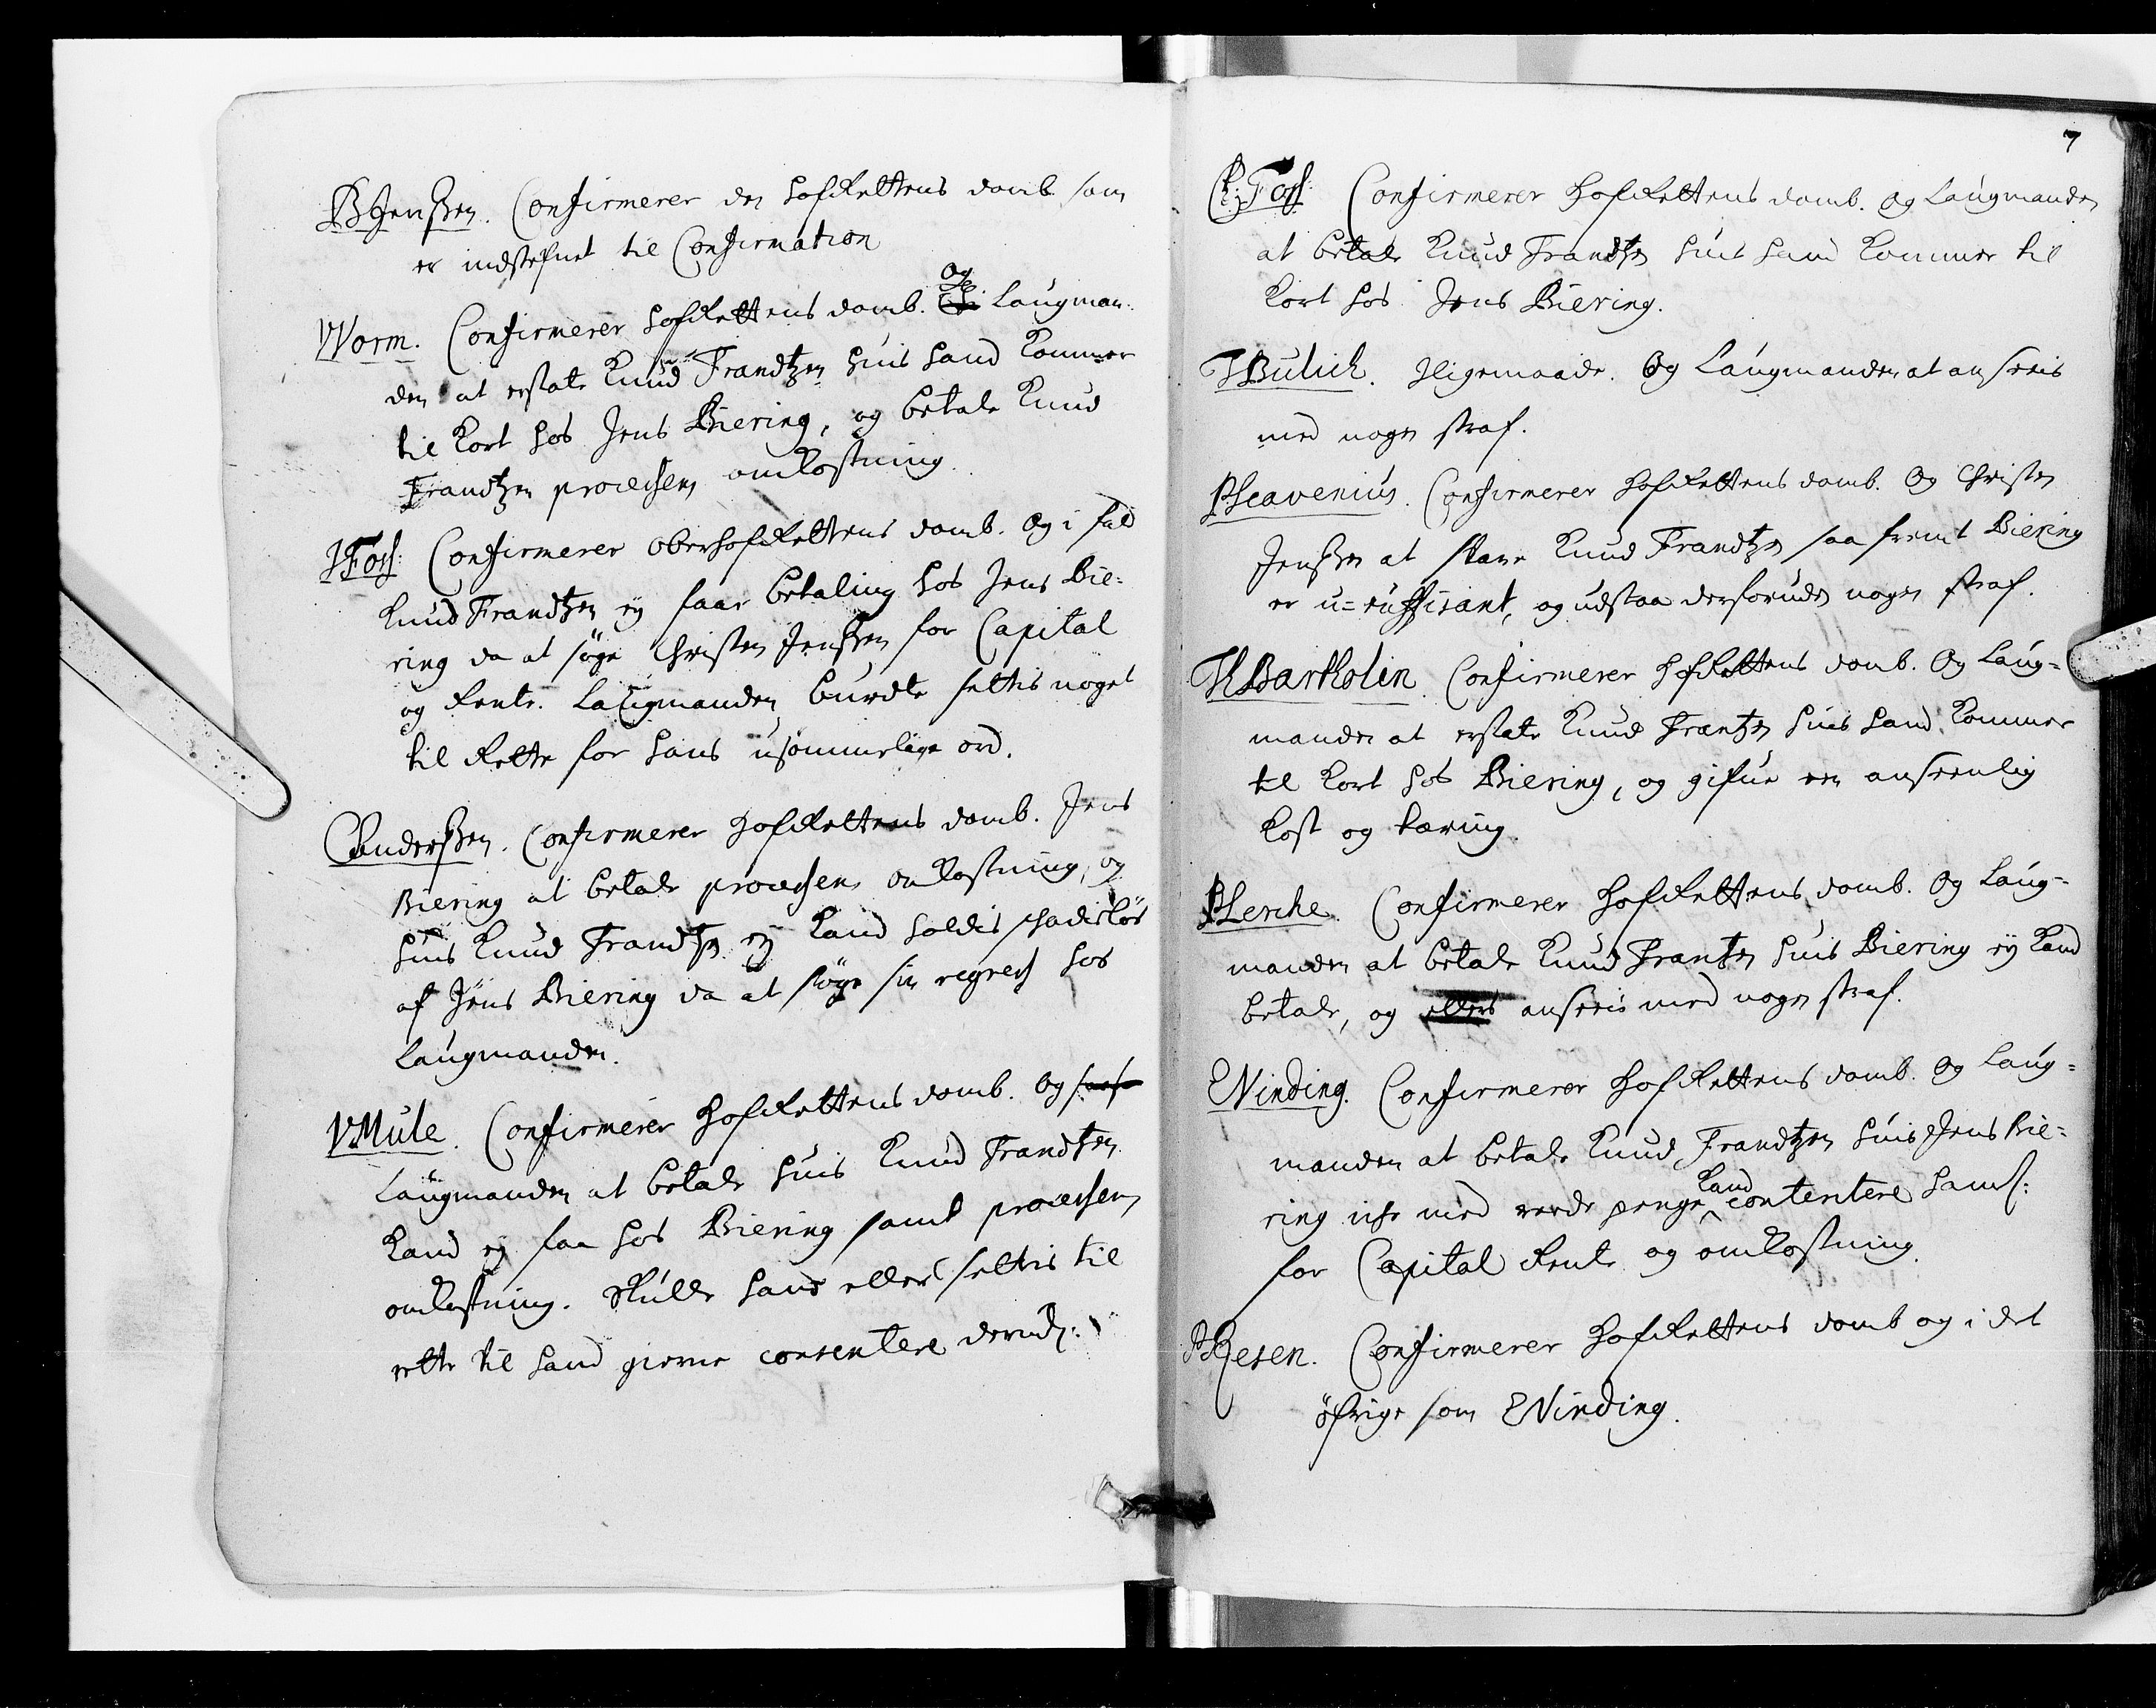 BJenßen. Confirmerer den HofRettens domb som
er indstefnet til Confirmation
Worm. Confirmerer HofRettens domb. Og Laugman-
den at erstate Knud Frandtzen huis hand kommer
til kort hos Jens Biering, og betale Knud
Frandtzen processens omkostning.
JFoss: Confirmerer OberhofRettens domb. Og i fald
Knud Frandtzen ey faar betaling hos Jens Bie-
ring da at søge Christen Jenßen for Capital
og Rente. Laugmanden burdte settis noget
til Rette for hans usømmelige ord.
CAnderßen. Confirmerer HofRettens domb. Jens
Biering at betale processens omkostning, og
huis Knud Frandtzen ey kand holdis schadisløs
af Jens Biering da at søge sin regress hos
Laugmanden.
VMule. Confirmerer HofRettens domb. Og
Laugmanden at betale huis Knud Frandtzen
kand ey faa hos Biering samt processens
omkostning. Skulle hand ellers settis til
rette vil hand gierne consentere derudj:
7
C: Foss: Confirmerer HofRettens domb. Og Laugmanden
at betale Knud Frandtzen huis hand kommer til
kort hos Jens Biering.
TBulich. Jligemaade. Og Laugmanden at ansees
med nogen straf.
PScavenius. Confirmerer HofRettens domb. Og Christen
Jenßen at svare Knud Frandtzen saa fremt Biering
er u-suffisant, og udstaa desforuden nogen straf.
Bartholin. Confirmerer HofRettens domb. Og Laug-
manden at erstate Knud Frantzen huis hand kommer
til kort hos Biering, og gifue een anseenlig
kost og tæring.
PLerche. Confirmerer HofRettens domb. Og Laug-
manden at betale Knud Frantzen huis Biering ey kand
betale, og ellers ansees med nogen straf.
EVinding. Confirmerer HofRettens domb. Og Laug-
manden at betale Knud Frandtzen huis Jens Bie-
ring icke med rede penge kand contentere hans:
for Capital Rente og omkostning.
PResen. Confirmerer HofRettens domb og i det
øfrige som EVinding.